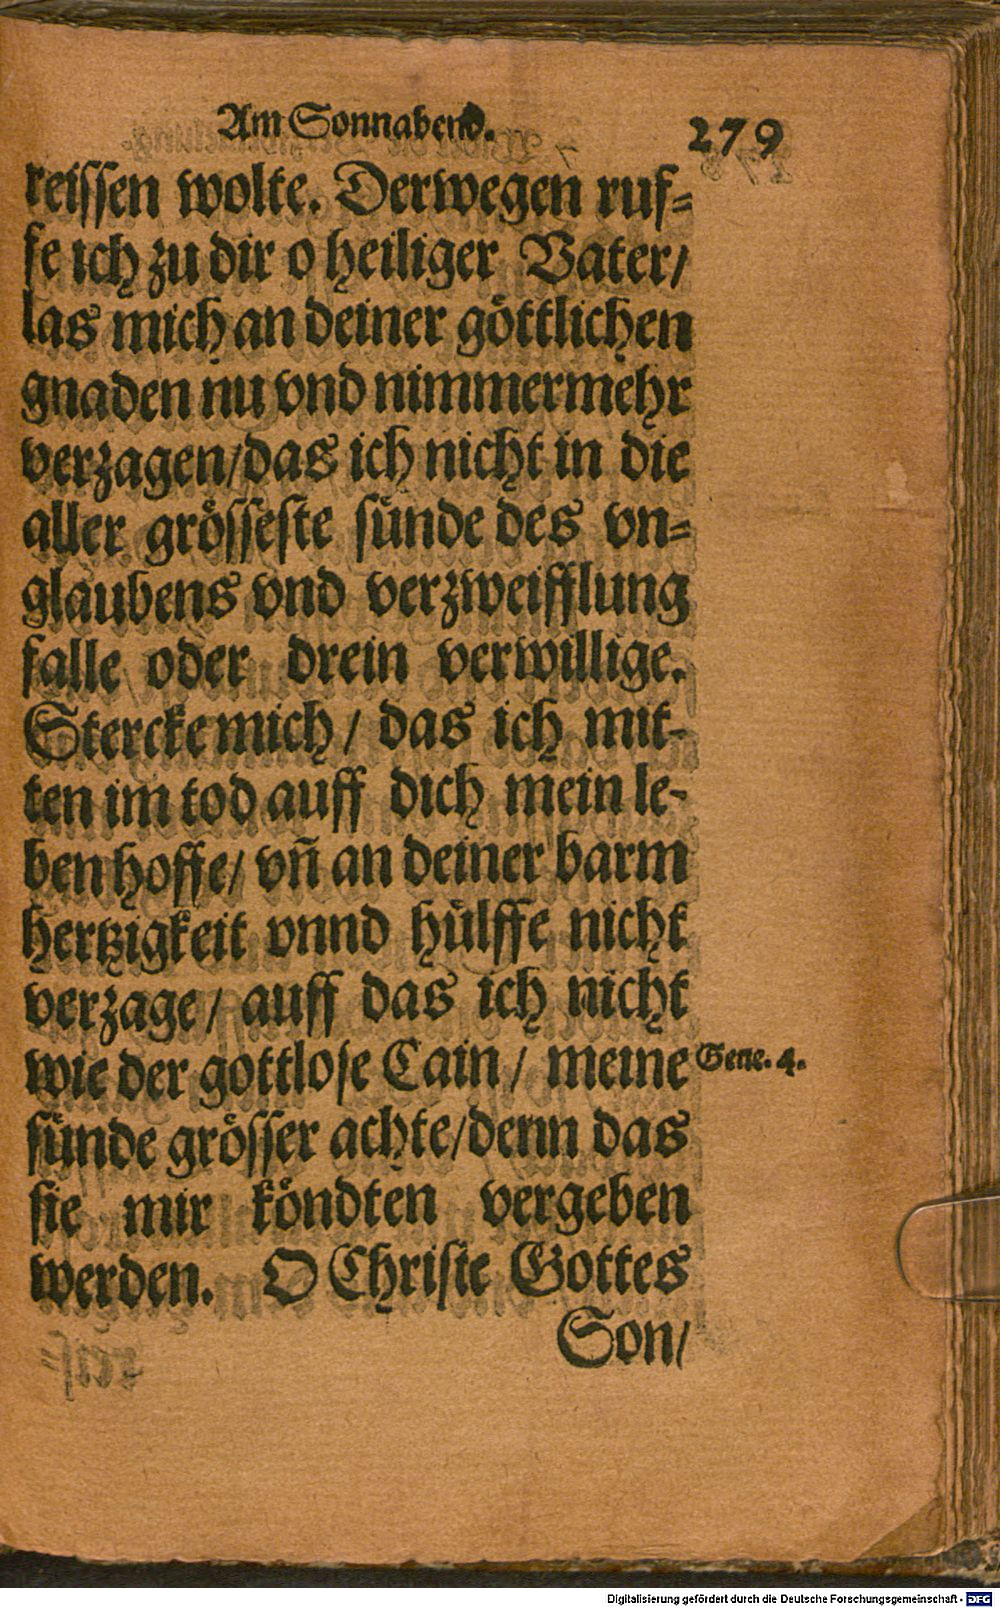 Am Sonnabend. 279
reissen wolte. Derwegen ruf-
fe ich zu dir o heiliger Vater/
las mich an deiner göttlichen
gnaden nu vnd nimmermehr
verzagen/das ich nicht in die
aller grösseste sünde des vn-
glaubens vnd verzweifflung
falle oder drein verwillige.
Stercke mich / das ich mit-
ten im tod auff dich mein le-
ben hoffe/ vñ an deiner barm
hertzigkeit vnnd hülffe nicht
verzage / auff das ich nicht
wie der gottlose Cain / meine
Gene. 4.
sünde grösser achte/denn das
sie mir köndten vergeben
werden. O Christe Gottes
Son/
Digitalisierung gefördert durch die Deutsche Forschungsgemeinschaft - DFG